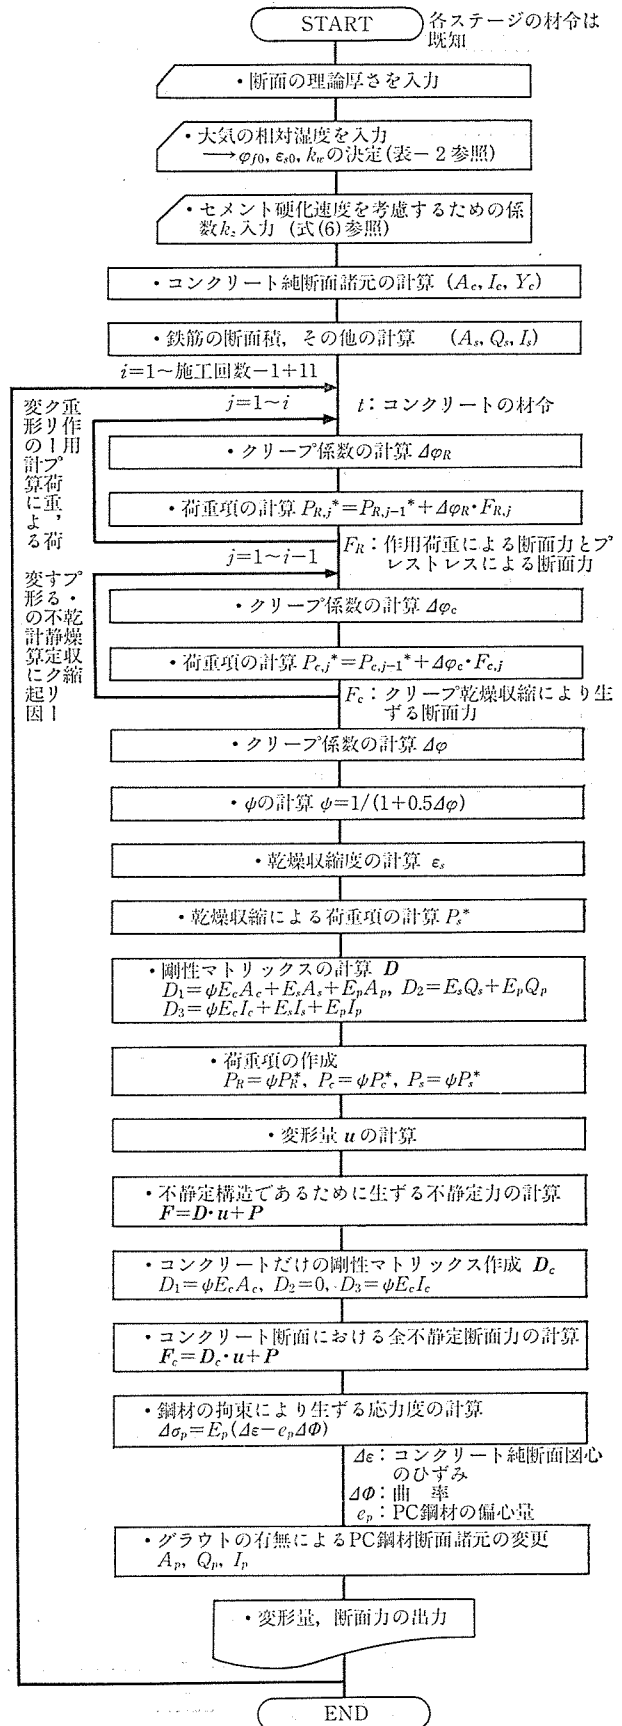 START
各ステージの材令は
既知
・断面の理論厚さを入力
・大気の相対湿度を入力
→φf0, εs0, kwの決定(表−2参照)
・セメント硬化速度を考慮するための係
数kz入力 (式(6)参照)
・コンクリート純断面諸元の計算 (Ac, Ic, Yc)
・鉄筋の断面積,その他の計算 (As, Qs, Is)
i=1〜施工回数−1+11
j=1〜i
t:コンクリートの材令
重作用
クリープ荷重,荷
変形の計算による
・クリープ係数の計算 ΔφR
・荷重項の計算 PR,j*=PR,j-1*+ΔφR・FR,j
FR:作用荷重による断面力とプ
レストレスによる断面力
j=1〜i−1
プ・乾燥収縮
する不静定クリー
変形の計算に起因
・クリープ係数の計算 Δφc
・荷重項の計算 Pc,j*=Pc,j-1*+Δφc・Fc,j
Fc:クリープ乾燥収縮により生
ずる断面力
・クリープ係数の計算 Δφ
・ψの計算 ψ=1/(1+0.5Δφ)
・乾燥収縮度の計算 εs
・乾燥収縮による荷重項の計算 Ps*
・剛性マトリックスの計算 D
D1=ψEcAc+EsAs+EpAp, D2=EsQs+EpQp
D3=ψEcIc+EsIs+EpIp
・荷重項の作成
PR=ψPR*, Pc=ψPc*, Ps=ψPs*
・変形量 u の計算
・不静定構造であるために生ずる不静定力の計算
F=D・u+P
・コンクリートだけの剛性マトリックス作成 Dc
D1=ψEcAc, D2=0, D3=ψEcIc
・コンクリート断面における全不静定断面力の計算
Fc=Dc・u+P
・鋼材の拘束により生ずる応力度の計算
Δσp=Ep(Δε−epΔΦ)
Δε:コンクリート純断面図心
のひずみ
ΔΦ:曲 率
ep:PC鋼材の偏心量
・グラウトの有無によるPC鋼材断面諸元の変更
Ap, Qp, Ip
・変形量,断面力の出力
END